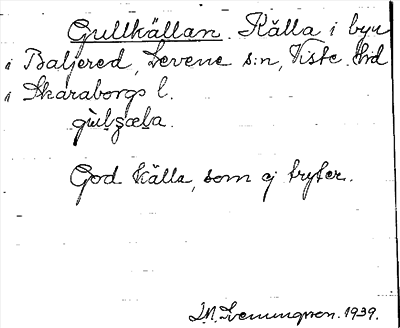 Gullkällan. Källa i byn
i Baljered, Levene s:n, Viste hd
i Skaraborgs l.
God källa, som ej tryter.
1939.